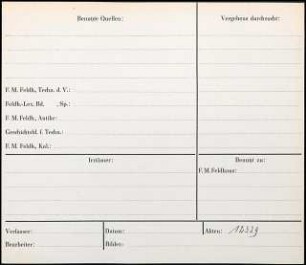 Benutzte Quellen:
Vergebens durchsucht:
F. M. Feldh., Techn. d. V.:
Feldh.-Lex. Bd. , Sp.:
F. M. Feldh., Antike:
Geschichtsbl. f. Techn.:
F. M. Feldh., Kal.:
Irrtümer:
Benutzt zu:
F. M. Feldhaus:
Verfasser:
Datum:
Akten:
Bearbeiter:
Bilder: